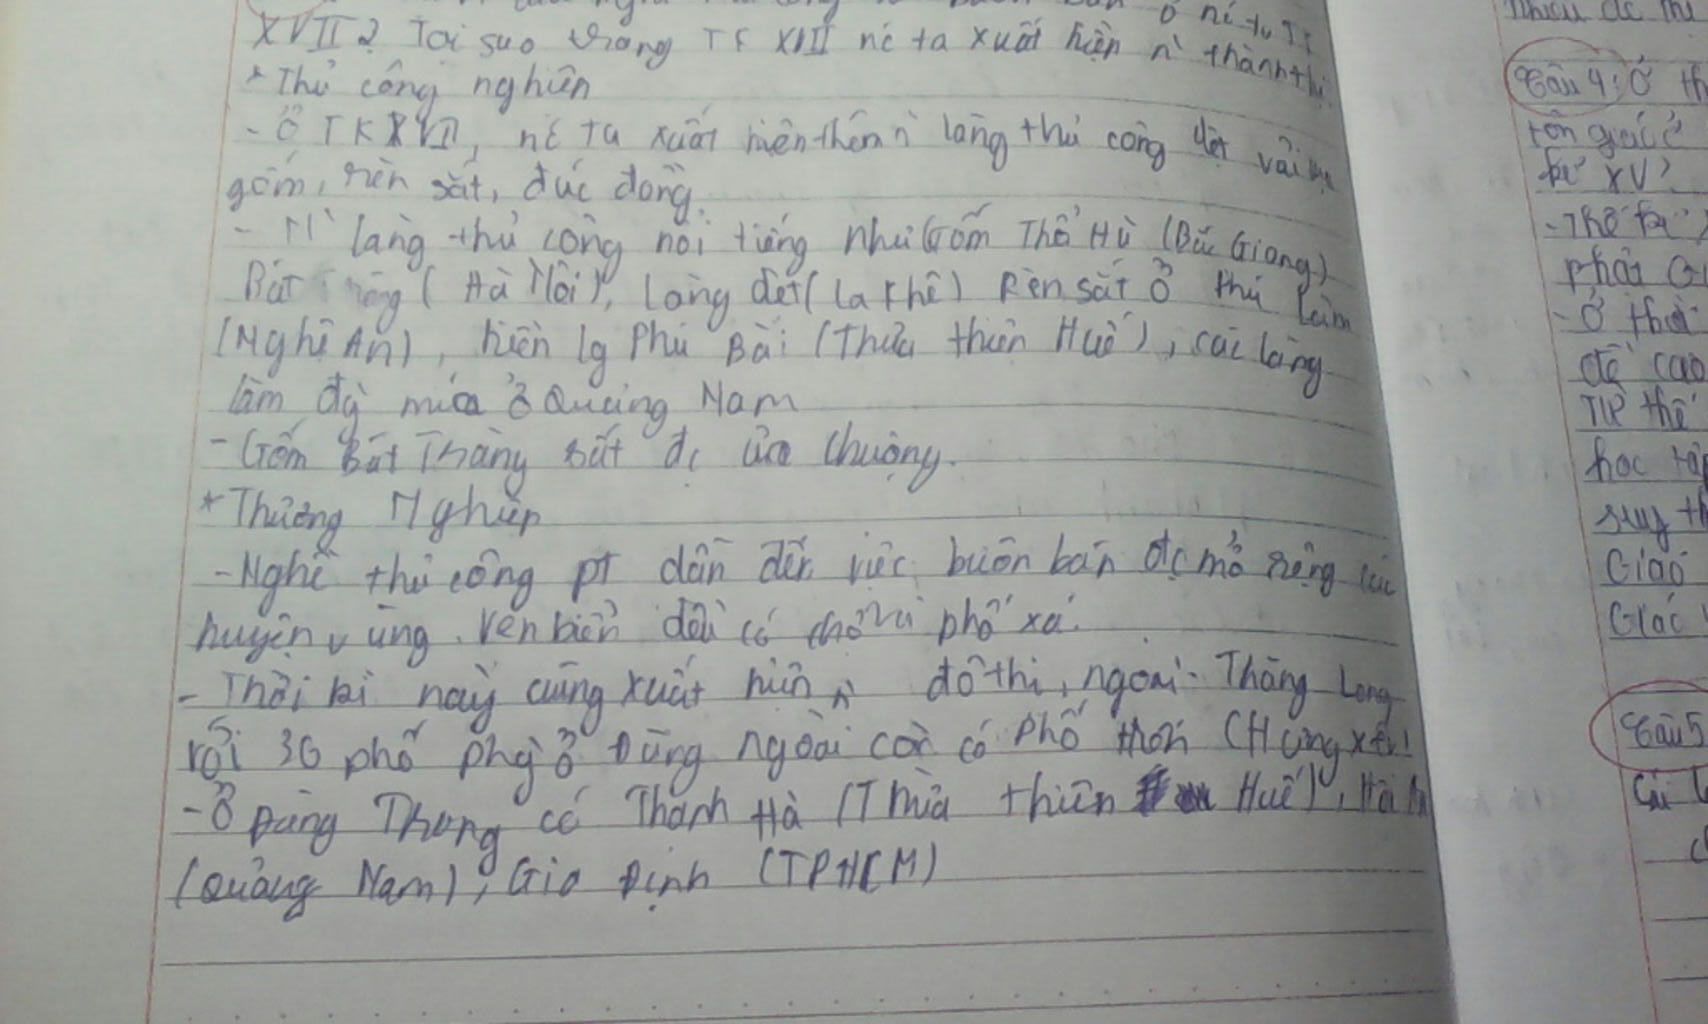 XVII? Tại sao trong TK XVII nc ta xuất hiện n` thành thị
* Thủ công nghiệp
- Ở TK XVII, nc ta xuất hiện thêm n` làng thủ công dệt vải
gốm, rèn sắt, đúc đồng.
- N` làng thủ công nổi tiếng như Gốm Thổ Hà (Bắc Giang)
Bát Tràng (Hà Nội), làng dệt (La Khê) Rèn sắt ở
(Nghệ An), hiền lg Phú Bài (Thừa thiên Huế), các làng
làm đg mía ở Quảng Nam
- Gốm Bát Tràng rất đc ưa chuộng.
* Thương Nghiệp
- Nghề thủ công pt dẫn đến việc buôn bán đc mở rộng các
huyện vùng ven biển đều có chợ và phố xá.
- Thời kì này cũng xuất hiện n` đô thị, ngoài Thăng Long
với 36 phố phg ở Đàng ngoài còn có Phố Hiến (Hưng Yên)
- Ở Đàng Trong có Thanh Hà (Thừa thiên Huế), Hội An
(Quảng Nam), Gia Định (TPHCM)
Câu 4: Ở
tôn giáo ở
kỉ XV?
- Thế kỉ
phật G
- Ở thời
đề cao
Từ thế
học tập
suy th
Giáo
Giác
Câu 5